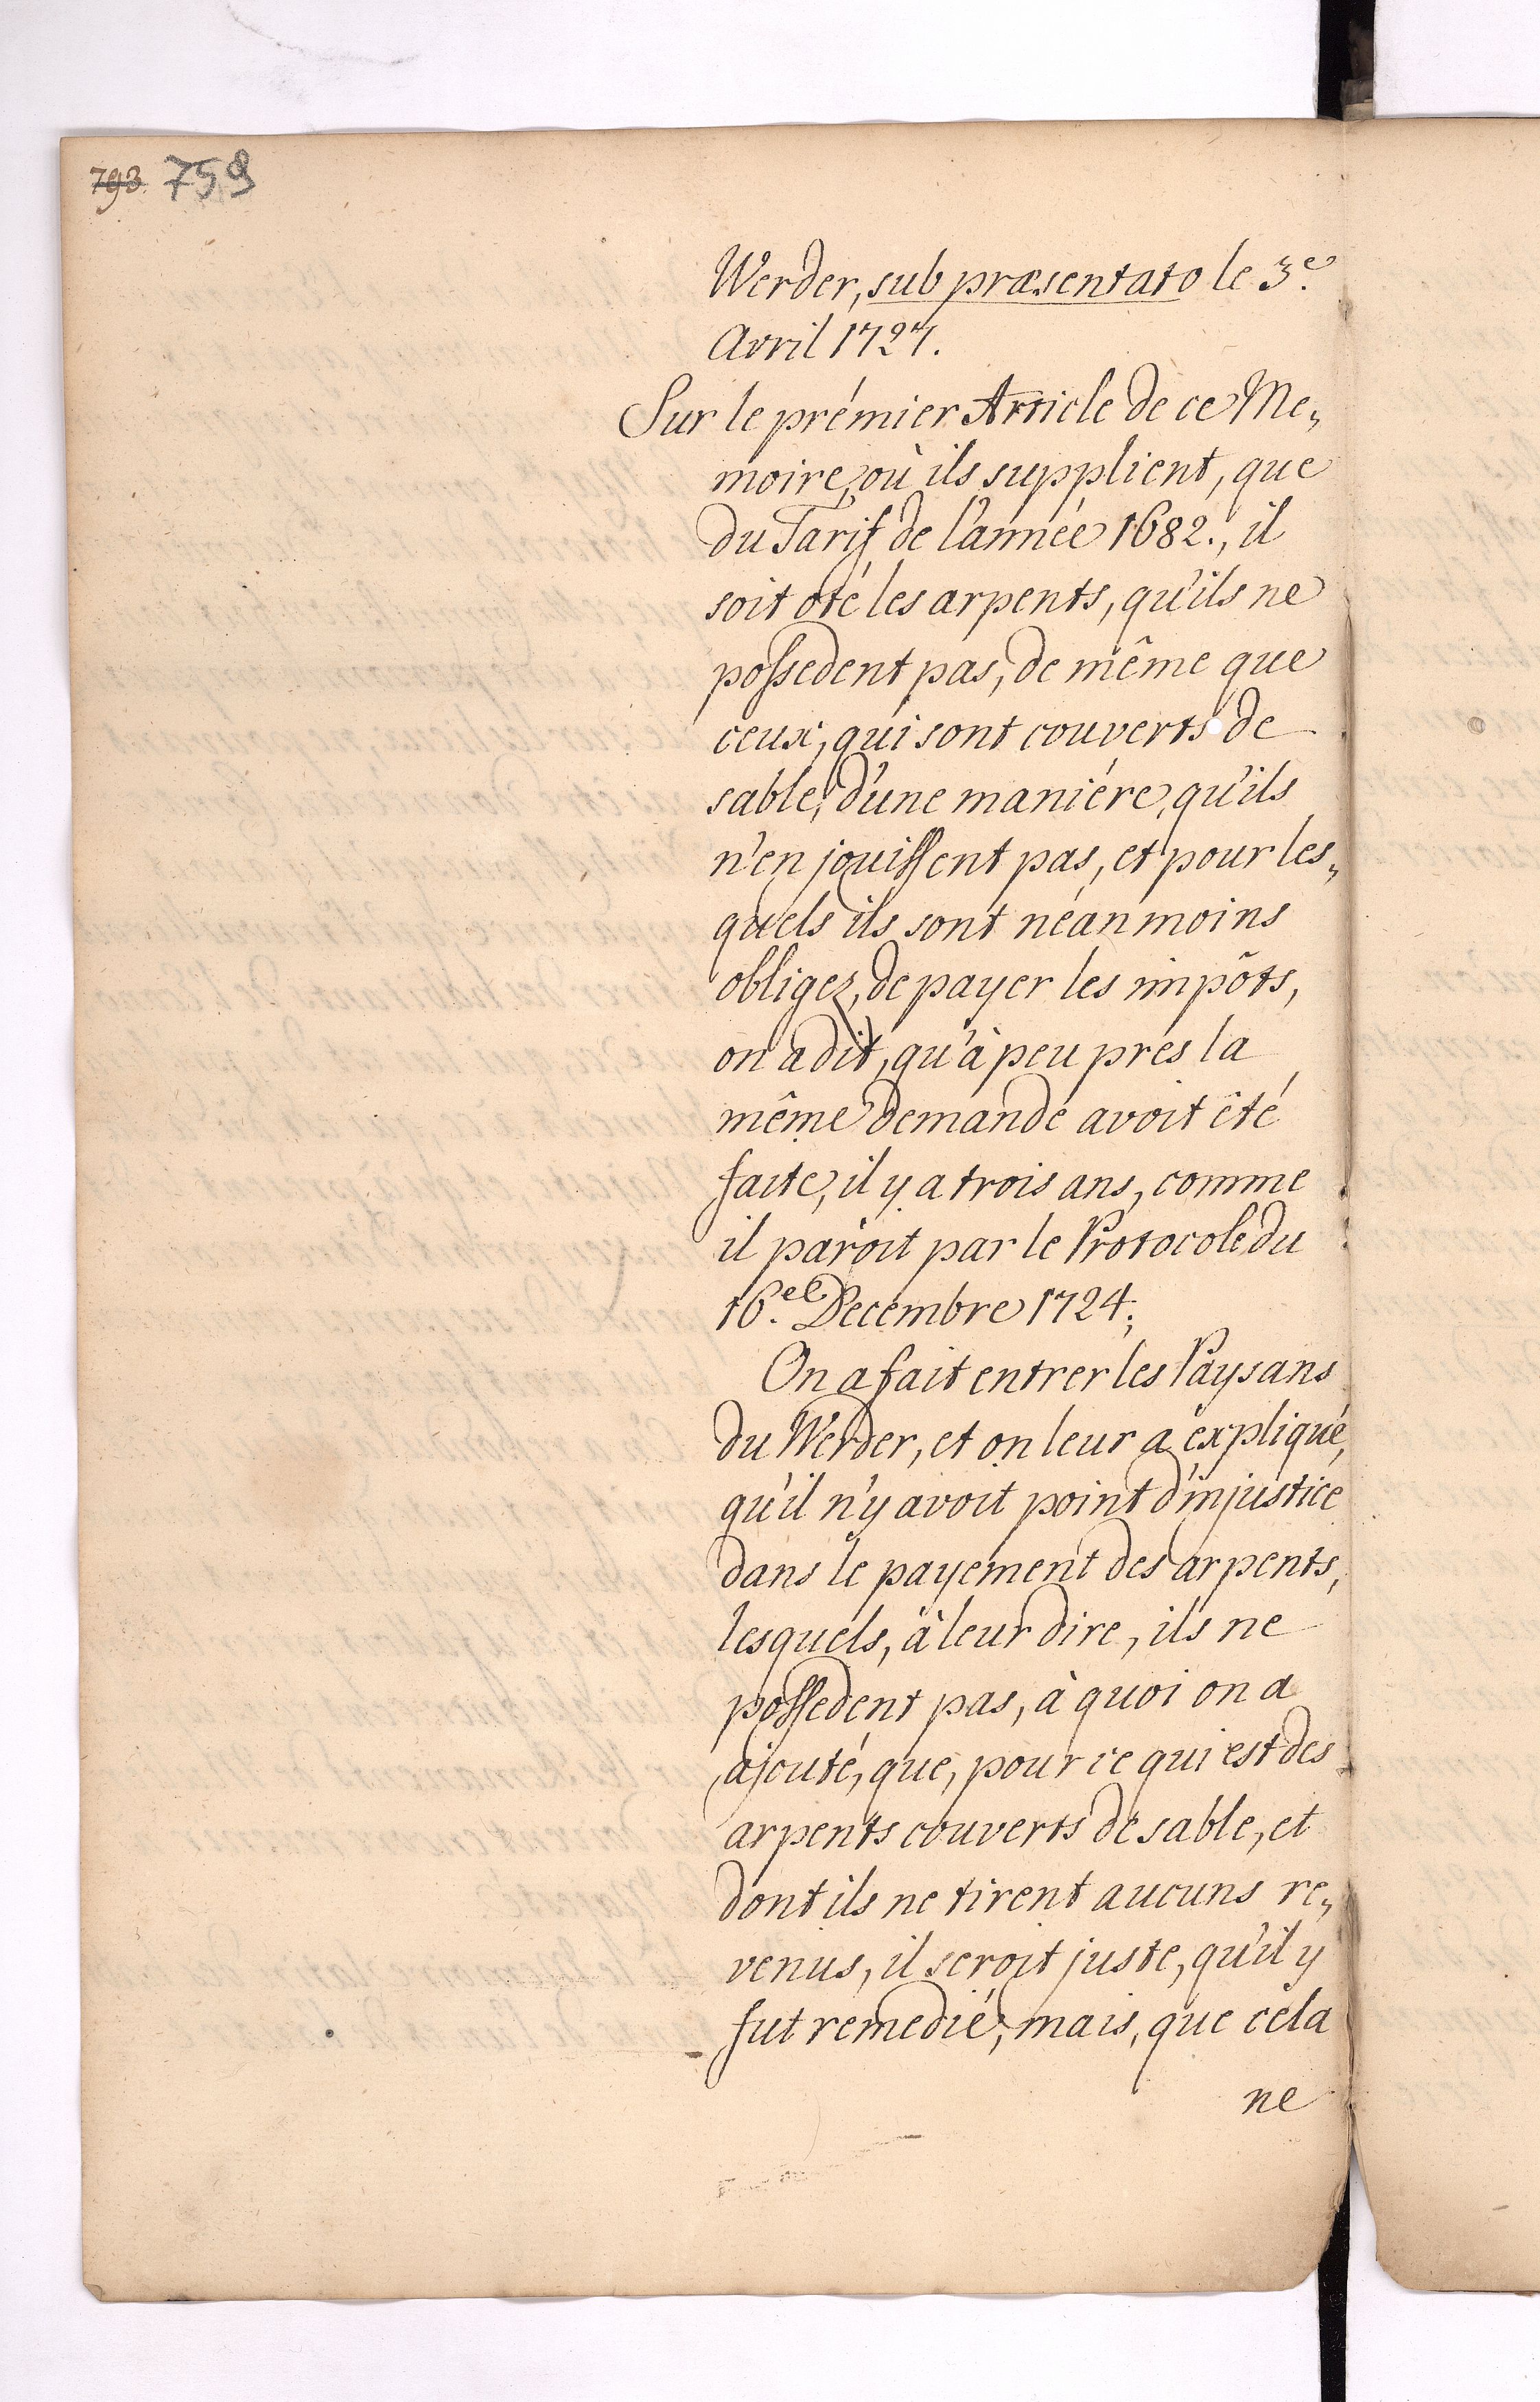 793. 759
Werder, sub præsentato le 3.e
Avril 1727.
Sur le prémier Article de ce Me„
moire, où ils supplient, que
du Tarif de l'année 1682., il
soit oté les arpents, qu'ils ne
possedent pas, de même que
ceux, qui sont couverts de
sable, d'une maniére, qu'ils
n'en jouissent pas, et pour les„
quels ils sont néanmoins
obligez, de payer les impôts,
on a dit, qu'à peu prés la
même demande avoit êté
faite, il y a trois ans, comme
il paroit par le Protocole du
16.e Decembre 1724;
On a fait entrer les Paysans
du Werder, et on leur a éxpliqué,
qu'il n'y avoit point d'injustice
dans le payement des arpents,
lesquels, à leur dire, ils ne
possedent pas, à quoi on a
ajouté, que, pour ce qui est des
arpents couverts de sable, et
dont ils ne tirent aucuns re„
venus, il seroit juste, qu'il y
fut remedié, mais, que cela
ne